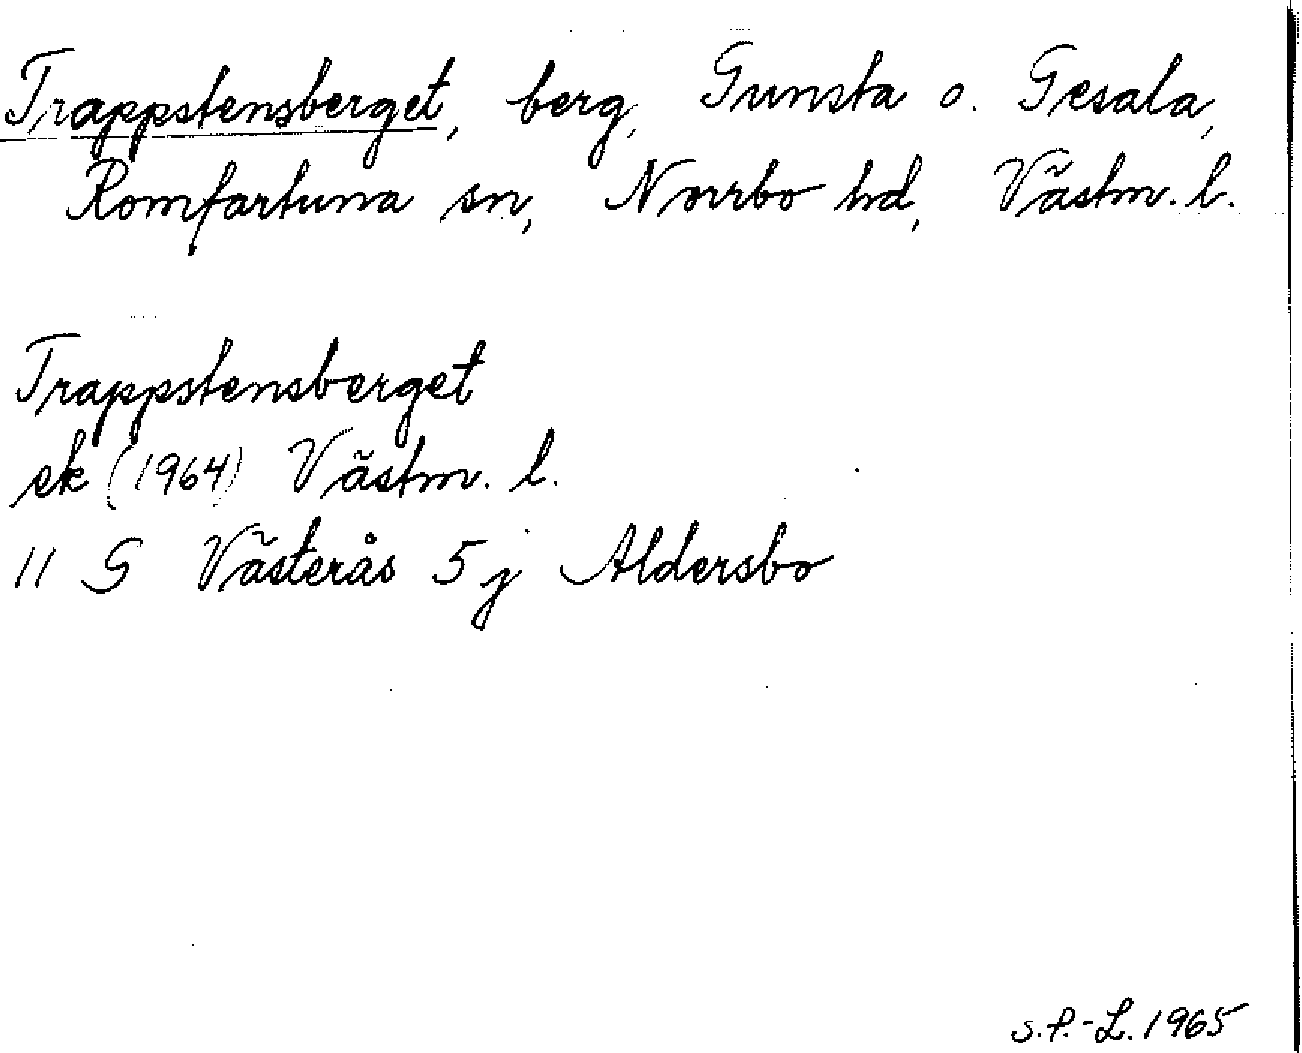 Trappstensberget, berg, Gunsta o. Gesala,
Romfartuna sn, Norrbo hd, Västm. l.
Trappstensberget
ek (1964) Västm. l.
11 G Västerås 5 j Aldersbo
S.P.-L. 1965